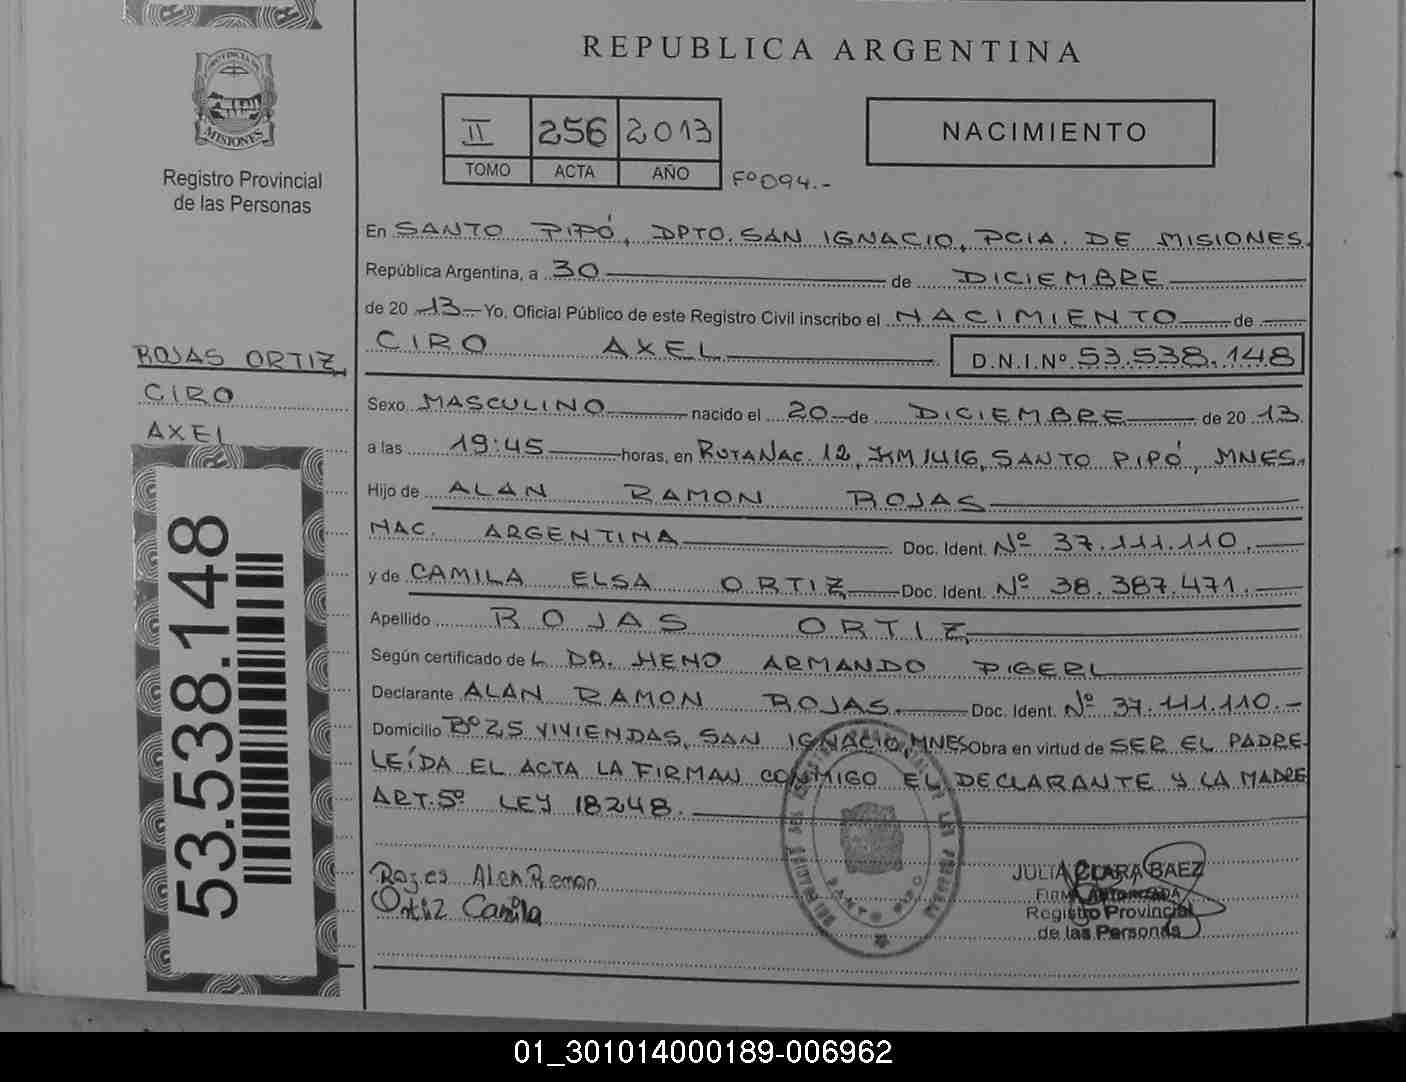 REPUBLICA ARGENTINA
PROVINCIA DE
MISIONES
Registro Provincial
de las Personas
II 256 2013
TOMO ACTA AÑO
Fº 094.-
NACIMIENTO
En SANTO PIPÓ, DPTO. SAN IGNACIO, PCIA. DE MISIONES.
República Argentina, a 30 de DICIEMBRE
de 20 13 Yo, Oficial Público de este Registro Civil inscribo el NACIMIENTO de
CIRO AXEL D.N.I.Nº 53.538.148
ROJAS ORTIZ
CIRO
AXEL
53.538.148
Sexo MASCULINO nacido el 20 de DICIEMBRE de 20 13
a las 19:45 horas, en RUTA NAC. 12, KM 1416, SANTO PIPÓ, MNES.
Hijo de ALAN RAMON ROJAS
NAC. ARGENTINA Doc. Ident. Nº 37.111.110.
y de CAMILA ELSA ORTIZ Doc. Ident. Nº 38.387.471.
Apellido ROJAS ORTIZ
Según certificado de L DR. HENO ARMANDO PIGERL
Declarante ALAN RAMON ROJAS. Doc. Ident. Nº 37.111.110.-
Domicilio Bº 25 VIVIENDAS, SAN IGNACIO, MNES Obra en virtud de SER EL PADRE.
LEÍDA EL ACTA LA FIRMAN CONMIGO EL DECLARANTE Y LA MADRE
ART. 5º LEY 18248.
Rojas Alan Ramon
Ortiz Camila
SANTO PIPO
JULIA CLARA BAEZ
FIRMA AUTORIZADA
Registro Provincial
de las Personas
01_301014000189-006962